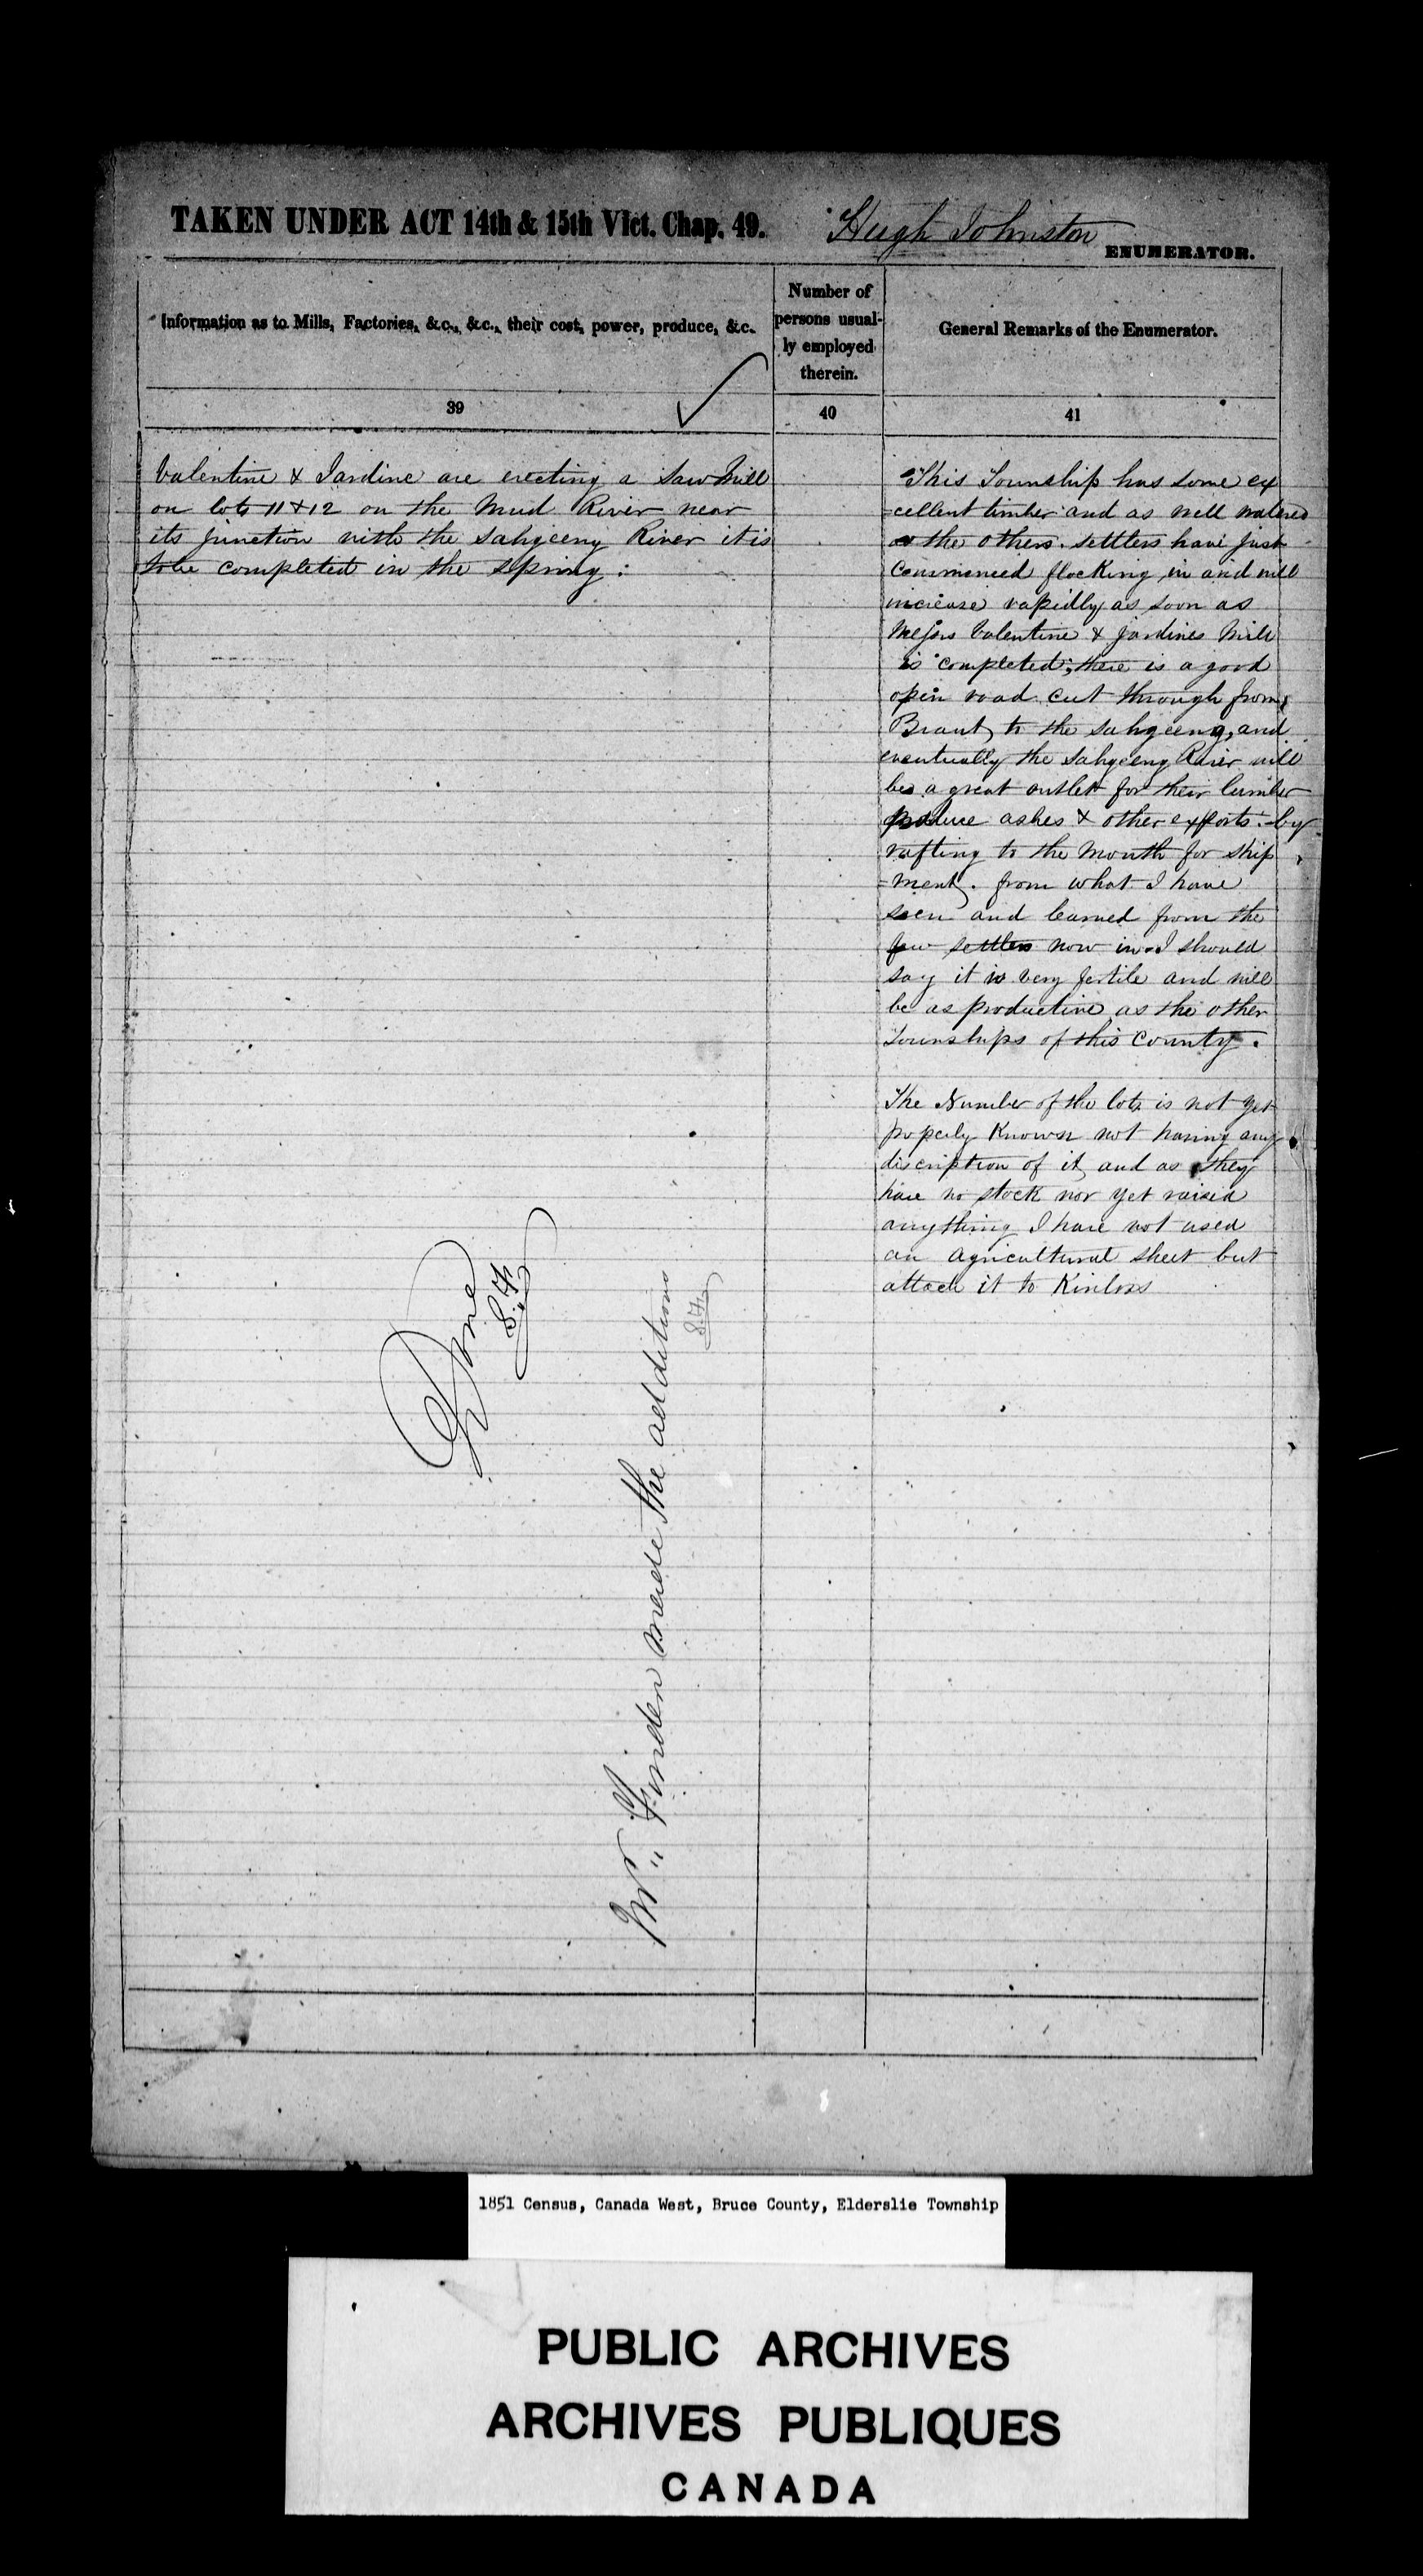 TAKEN UNDER ACT 14th & 15th Vict. Chap. 49.
Hugh Johnston
ENUMERATOR.
Information as to Mills, Factories, &c., &c., their cost, power, produce, &c.
Number of
persons usual-
ly employed
therein.
General Remarks of the Enumerator.
39
40
41
Valentine & Jardine are erecting a Saw Mill
on lots 11 & 12 on the Mud River near
its junction with the Sahgeeng River it is
to be completed in the Spring :
This Township has some ex
-cellent timber and as well watered
as the others. settlers have just
Commenced flocking in and will
increase rapidly as soon as
Messrs Valentine & Jardines Mill
is completed; there is a good
open road cut through from
Brant, to the Sahgeeng, and
eventually the Sahgeeng River will
be a great outlet for their lumber
produce ashes & other exports. by
rafting to the Mouth for ship
-ment. from what I have
seen and learned from the
few settlers now in. I should
say it is very fertile and will
be as productive as the other
Townships of this County.
The Number of the lots is not yet
properly Known not having any
discription of it, and as they
have no stock nor yet raised
anything I have not used
an Agricultural sheet but
attach it to Kinloss
Done
S.F.
Mr. Finden made the additions
S.F.
1851 Census, Canada West, Bruce County, Elderslie Township
PUBLIC ARCHIVES
ARCHIVES PUBLIQUES
CANADA